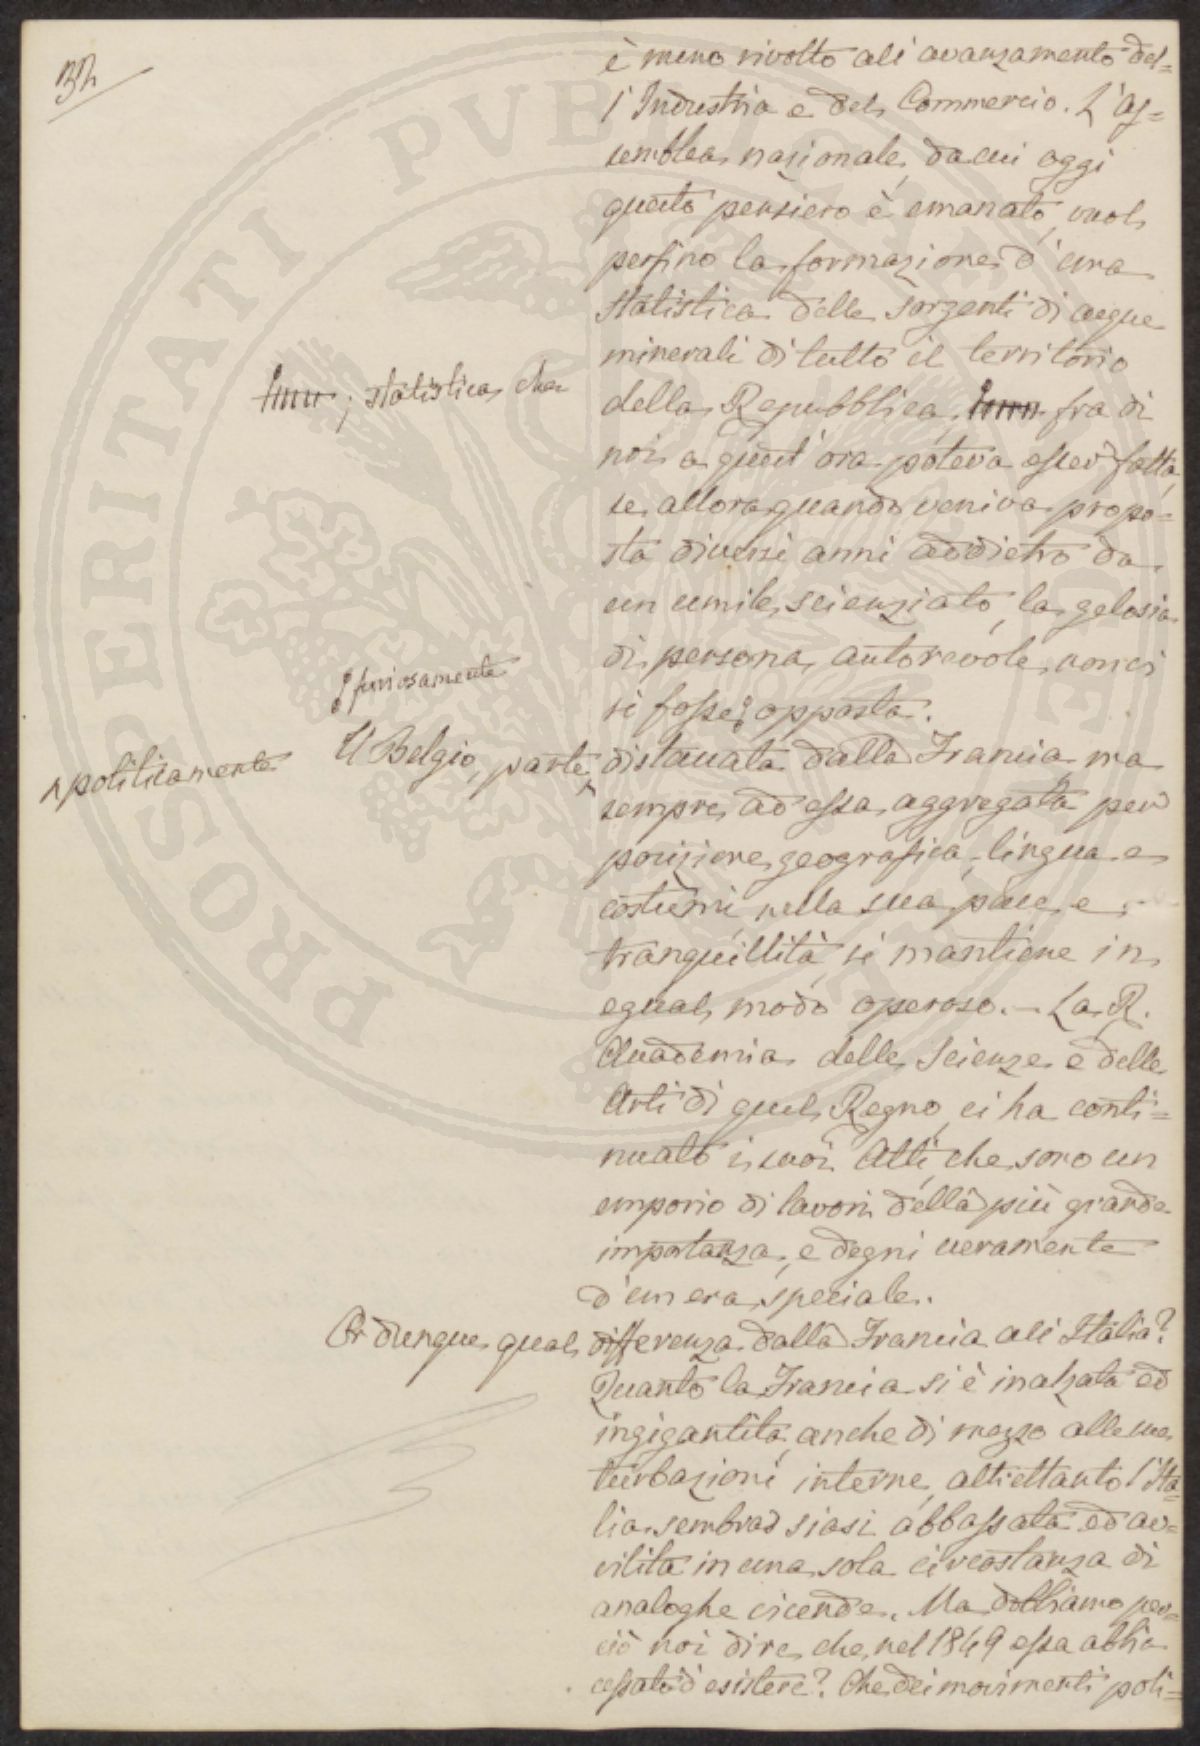 è meno rivolto all' avanzamento del=
l' Industria e del Commercio. L' As=
semblea nazionale, da cui oggi
questo pensiero è emanato, vuol
perfino la formazione d' una
statistica delle sorgenti di acque
minerali di tutto il territorio
; statistica che
della Repubblica, fra di
noi a quest' ora poteva esser fatta,
se allora quando veniva propo=
sta diversi anni addietro da
un umile scienziato, la gelosia
di persona autorevole non ci
furiosamente
si fosse opposta.
politicamente
Il Belgio, parte distaccata dalla Francia, ma
sempre ad essa aggregata per
posizione geografica, lingua e
costumi, nella sua pace e
tranquillità si mantiene in
egual modo operoso. — La R.
Accademia delle Scienze e delle
Arti di quel Regno, ci ha conti=
nuato i suoi Atti, che sono un
emporio di lavori della più grande
importanza, e degni veramente
d' un era speciale.
Or dunque qual differenza dalla Francia all' Italia?
Quanto la Francia si è inalzata ed
ingigantita, anche di mezzo alle sue
turbazioni interne, altrettanto l' Ita=
lia sembra siasi abbassata ed av=
vilita in una sola circostanza di
analoghe vicende. Ma dobbiamo per=
ciò noi dire che nel 1849 essa abbia
cessato d' esistere? Che dei movimenti poli=
PROSPERITATI PUBLICAE